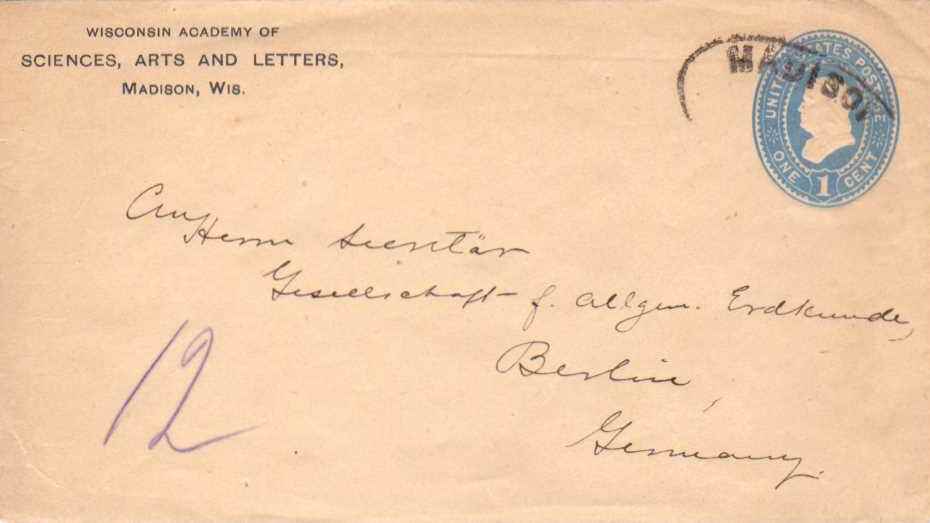 WISCONSIN ACADEMY OF
SCIENCES, ARTS AND LETTERS,
MADISON, WIS.
MADISO
UNITED STATES POSTAGE
ONE 1 CENT
An
Herrn Secretär
Gesellschaft f. Allgem. Erdkunde,
Berlin,
Germany.
12